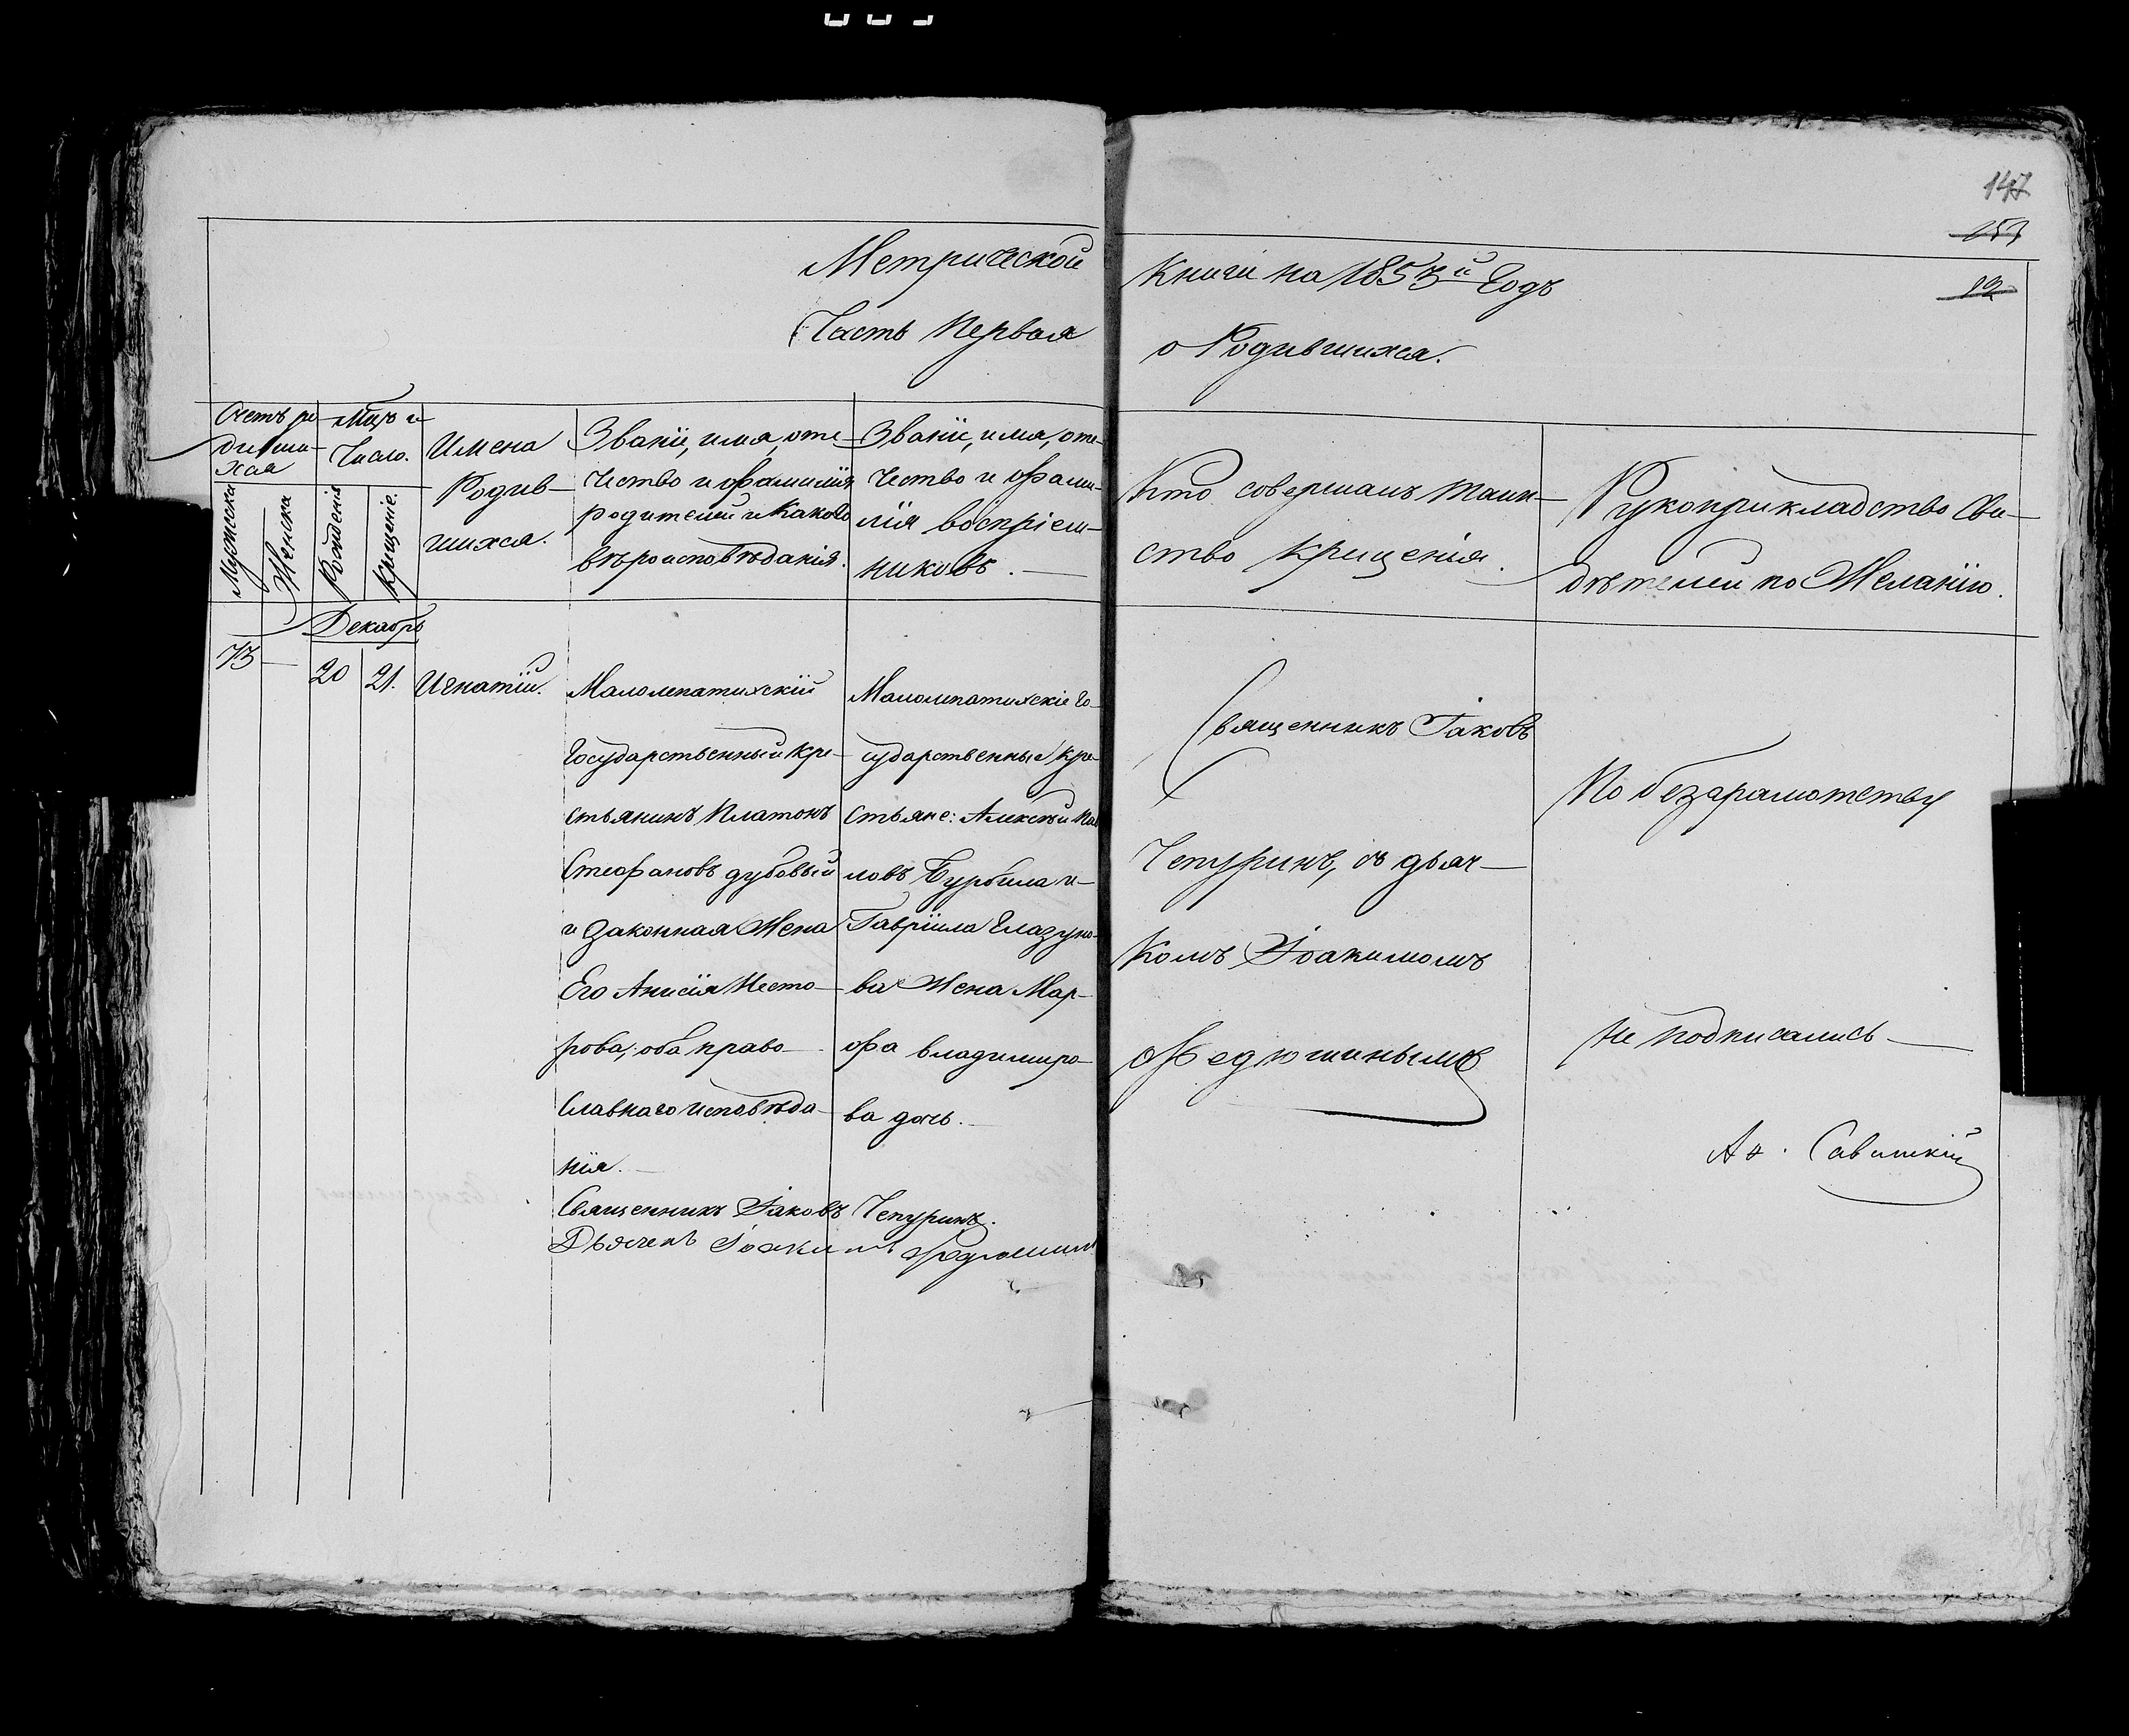 147
153
19
Метрической Книги на 1853й Годъ
Часть Первая о Родившихся.
Счетъ ро-
дивши-
хся
Мужеска
Женска
Мцъ и
Число.
Рожденія
Крещеніе.
Имена
Родив-
шихся.
Званіе, имя, оте-
чество и фамилія
родителей и какого
вѣроисповѣданія.
Званіе, имя, оте-
чество и фами-
лія воспріем-
никовъ.
Кто совершалъ таин-
ство крещенія.
Рукоприкладство Сви-
дѣтелей по Желанію.
Декабрь
73 — 20 21. Игнатій.
Малолепатихскій
Государственный Кре-
стьянинъ Платонъ
Стефановъ дубовый
и Законная Жена
Его Анисія Несто-
рова, оба право-
славнаго исповѣда-
нія.
Малолепатихскіе Го-
сударственные Кре-
стьяне: Алексѣй Пав-
ловъ Бурбила и
Гавріила Глазуно-
ва Жена Мар-
фа Владимиро-
ва дочь.
Священникъ Іаковъ
Чепуринъ, съ дьяч-
комъ Іоакимомъ
Федюшинымъ
По безграмотству
не подписались
Ан. Савицкій
Священникъ Іаковъ Чепуринъ.
Дьячекъ Іоакимъ Федюшинъ